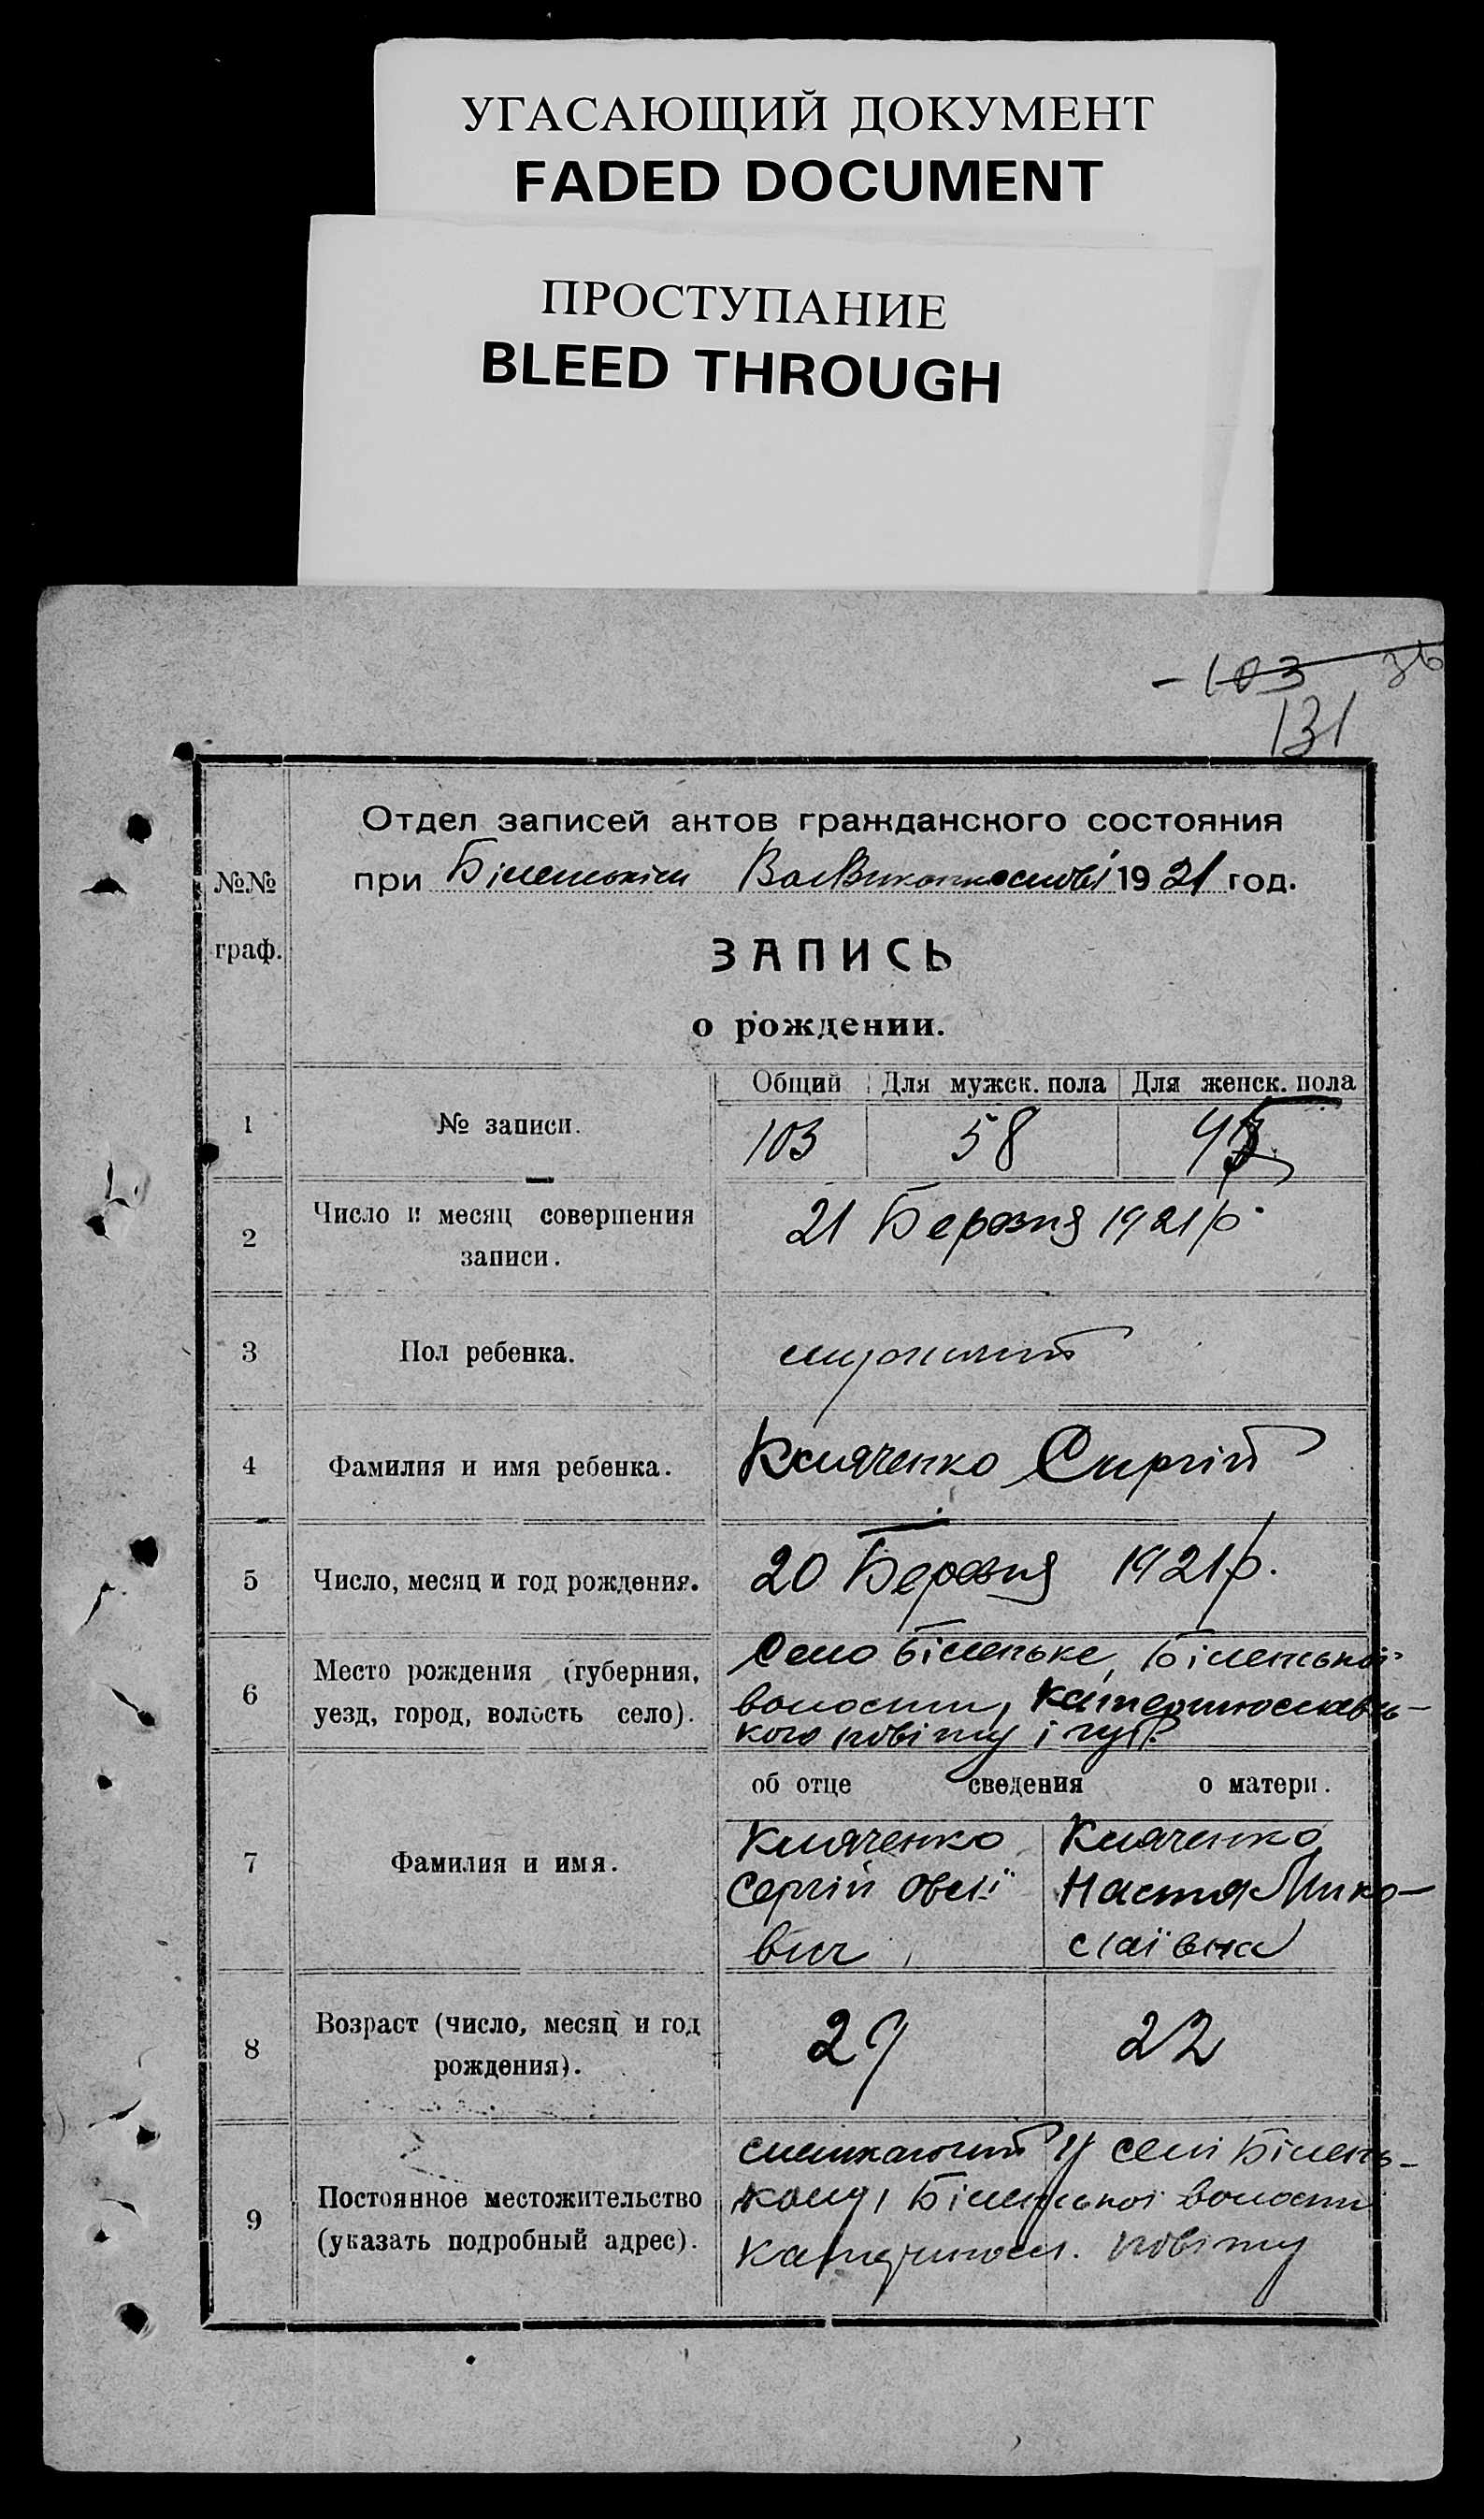 УГАСАЮЩИЙ ДОКУМЕНТ
FADED DOCUMENT
ПРОСТУПАНИЕ
BLEED THROUGH
103
131
№№ граф.
Отдел записей актов гражданского состояния
при Біленьким 1921 год.
ЗАПИСЬ
о рождении.
Общий Для мужск. пола Для женск. пола
1 № записи. 103 58
2 Число и месяц совершения записи. 21 Березня 1921 р.
3 Пол ребенка.
4 Фамилия и имя ребенка. Кляченко Сиргій
5 Число, месяц и год рождения. 20 Березня 1921 р.
6 Место рождения (губерния, уезд, город, волость село).
Село Біленьке, Біленької
волости, Катеринославсь-
кого повіту і губ.
об отце сведения о матери.
7 Фамилия и имя.
Кляченко
Сергій Овсі
вич
Кляченко
Настя Мико-
лаївна
8 Возраст (число, месяц и год рождения). 29 22
9 Постоянное местожительство (указать подробный адрес).
у селі Білень-
кому, Біленької волости
Катериносл. повіту